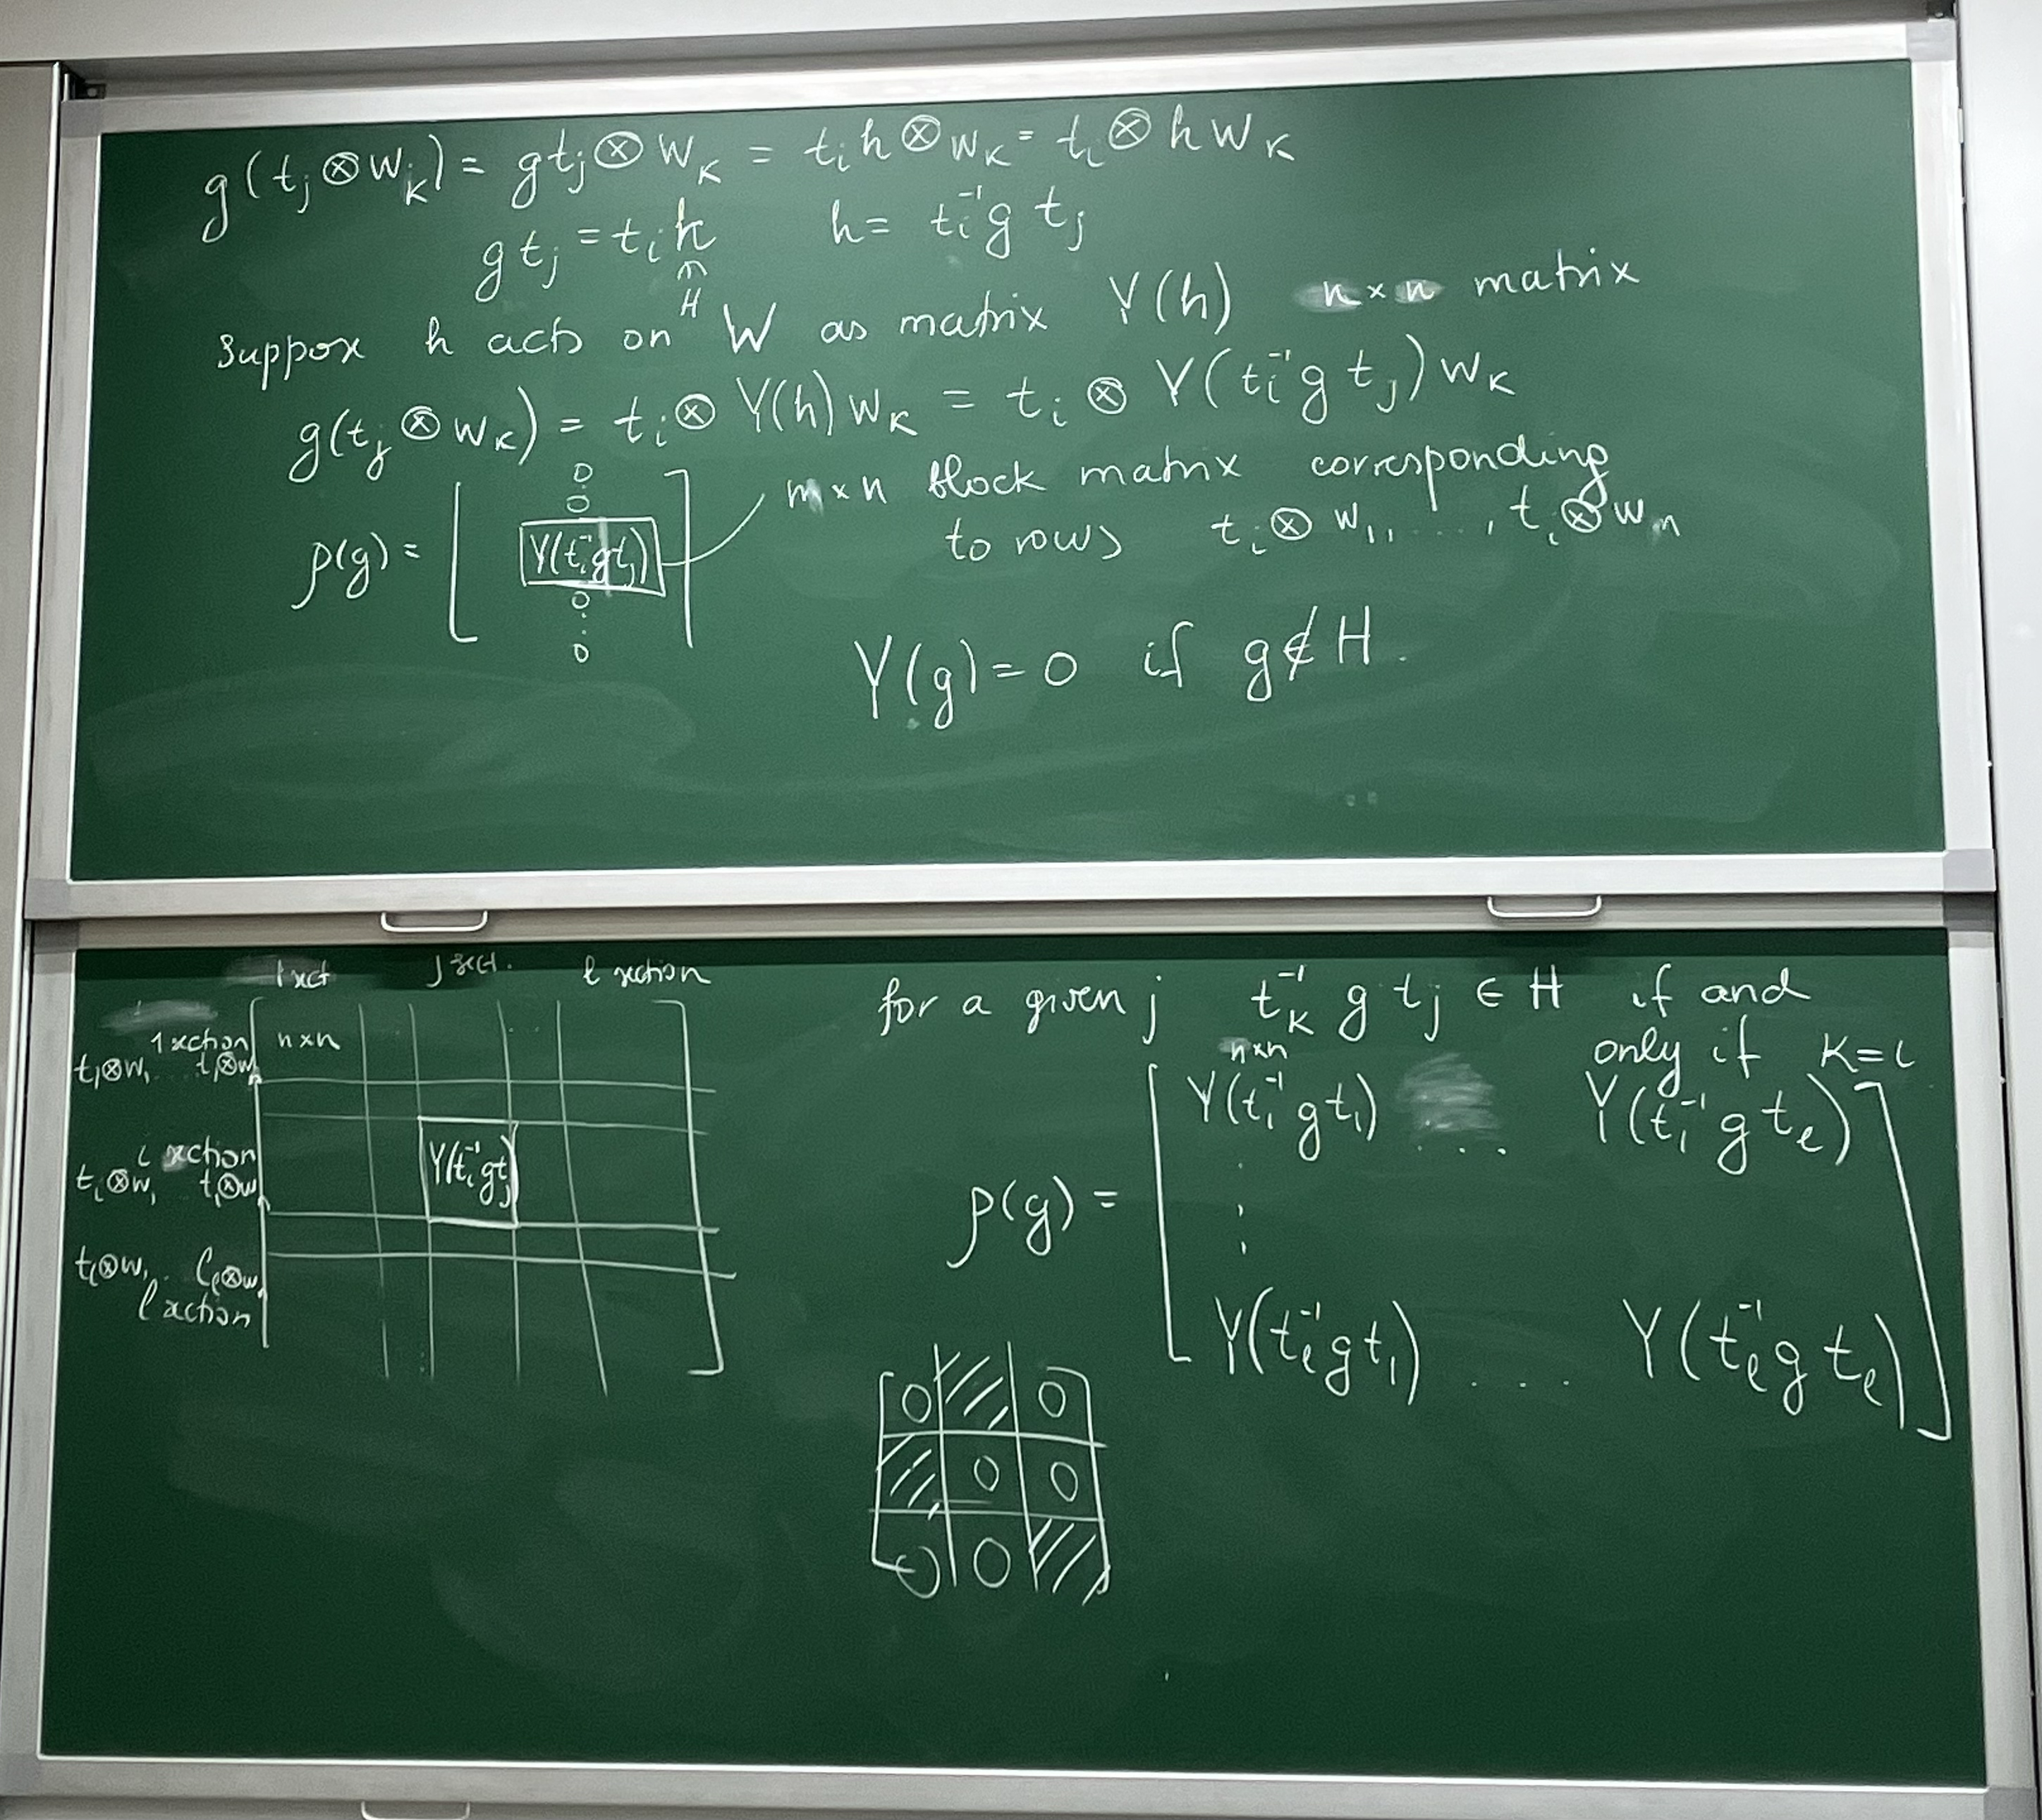 g(t_j ⊗ w_k) = gt_j ⊗ w_k = t_i h ⊗ w_k = t_i ⊗ h w_k
gt_j = t_i h    h = t_i^{-1} g t_j
∈ H
Suppose h acts on W as matrix Y(h)    n×n matrix
g(t_j ⊗ w_k) = t_i ⊗ Y(h) w_k = t_i ⊗ Y(t_i^{-1} g t_j) w_k
ρ(g) = [ 0 0 Y(t_i^{-1} g t_j) 0 ⋮ 0 ]
n×n block matrix corresponding
to rows t_i ⊗ w_1, ..., t_i ⊗ w_n
Y(g) = 0 if g ∉ H.
1 sect    j sect.    l section
1 section    n×n    ...
t_1⊗w_1 ... t_1⊗w_n
i section    Y(t_i^{-1} g t_j)
t_i⊗w_1 ... t_i⊗w_n
t_l⊗w_1 ... t_l⊗w_n
l section
for a given j    t_k^{-1} g t_j ∈ H    if and
only if k = i
n×n
ρ(g) = [ Y(t_1^{-1} g t_1) ... Y(t_1^{-1} g t_l)
⋮
Y(t_l^{-1} g t_1) .... Y(t_l^{-1} g t_l) ]
0 0
0 0
0 0